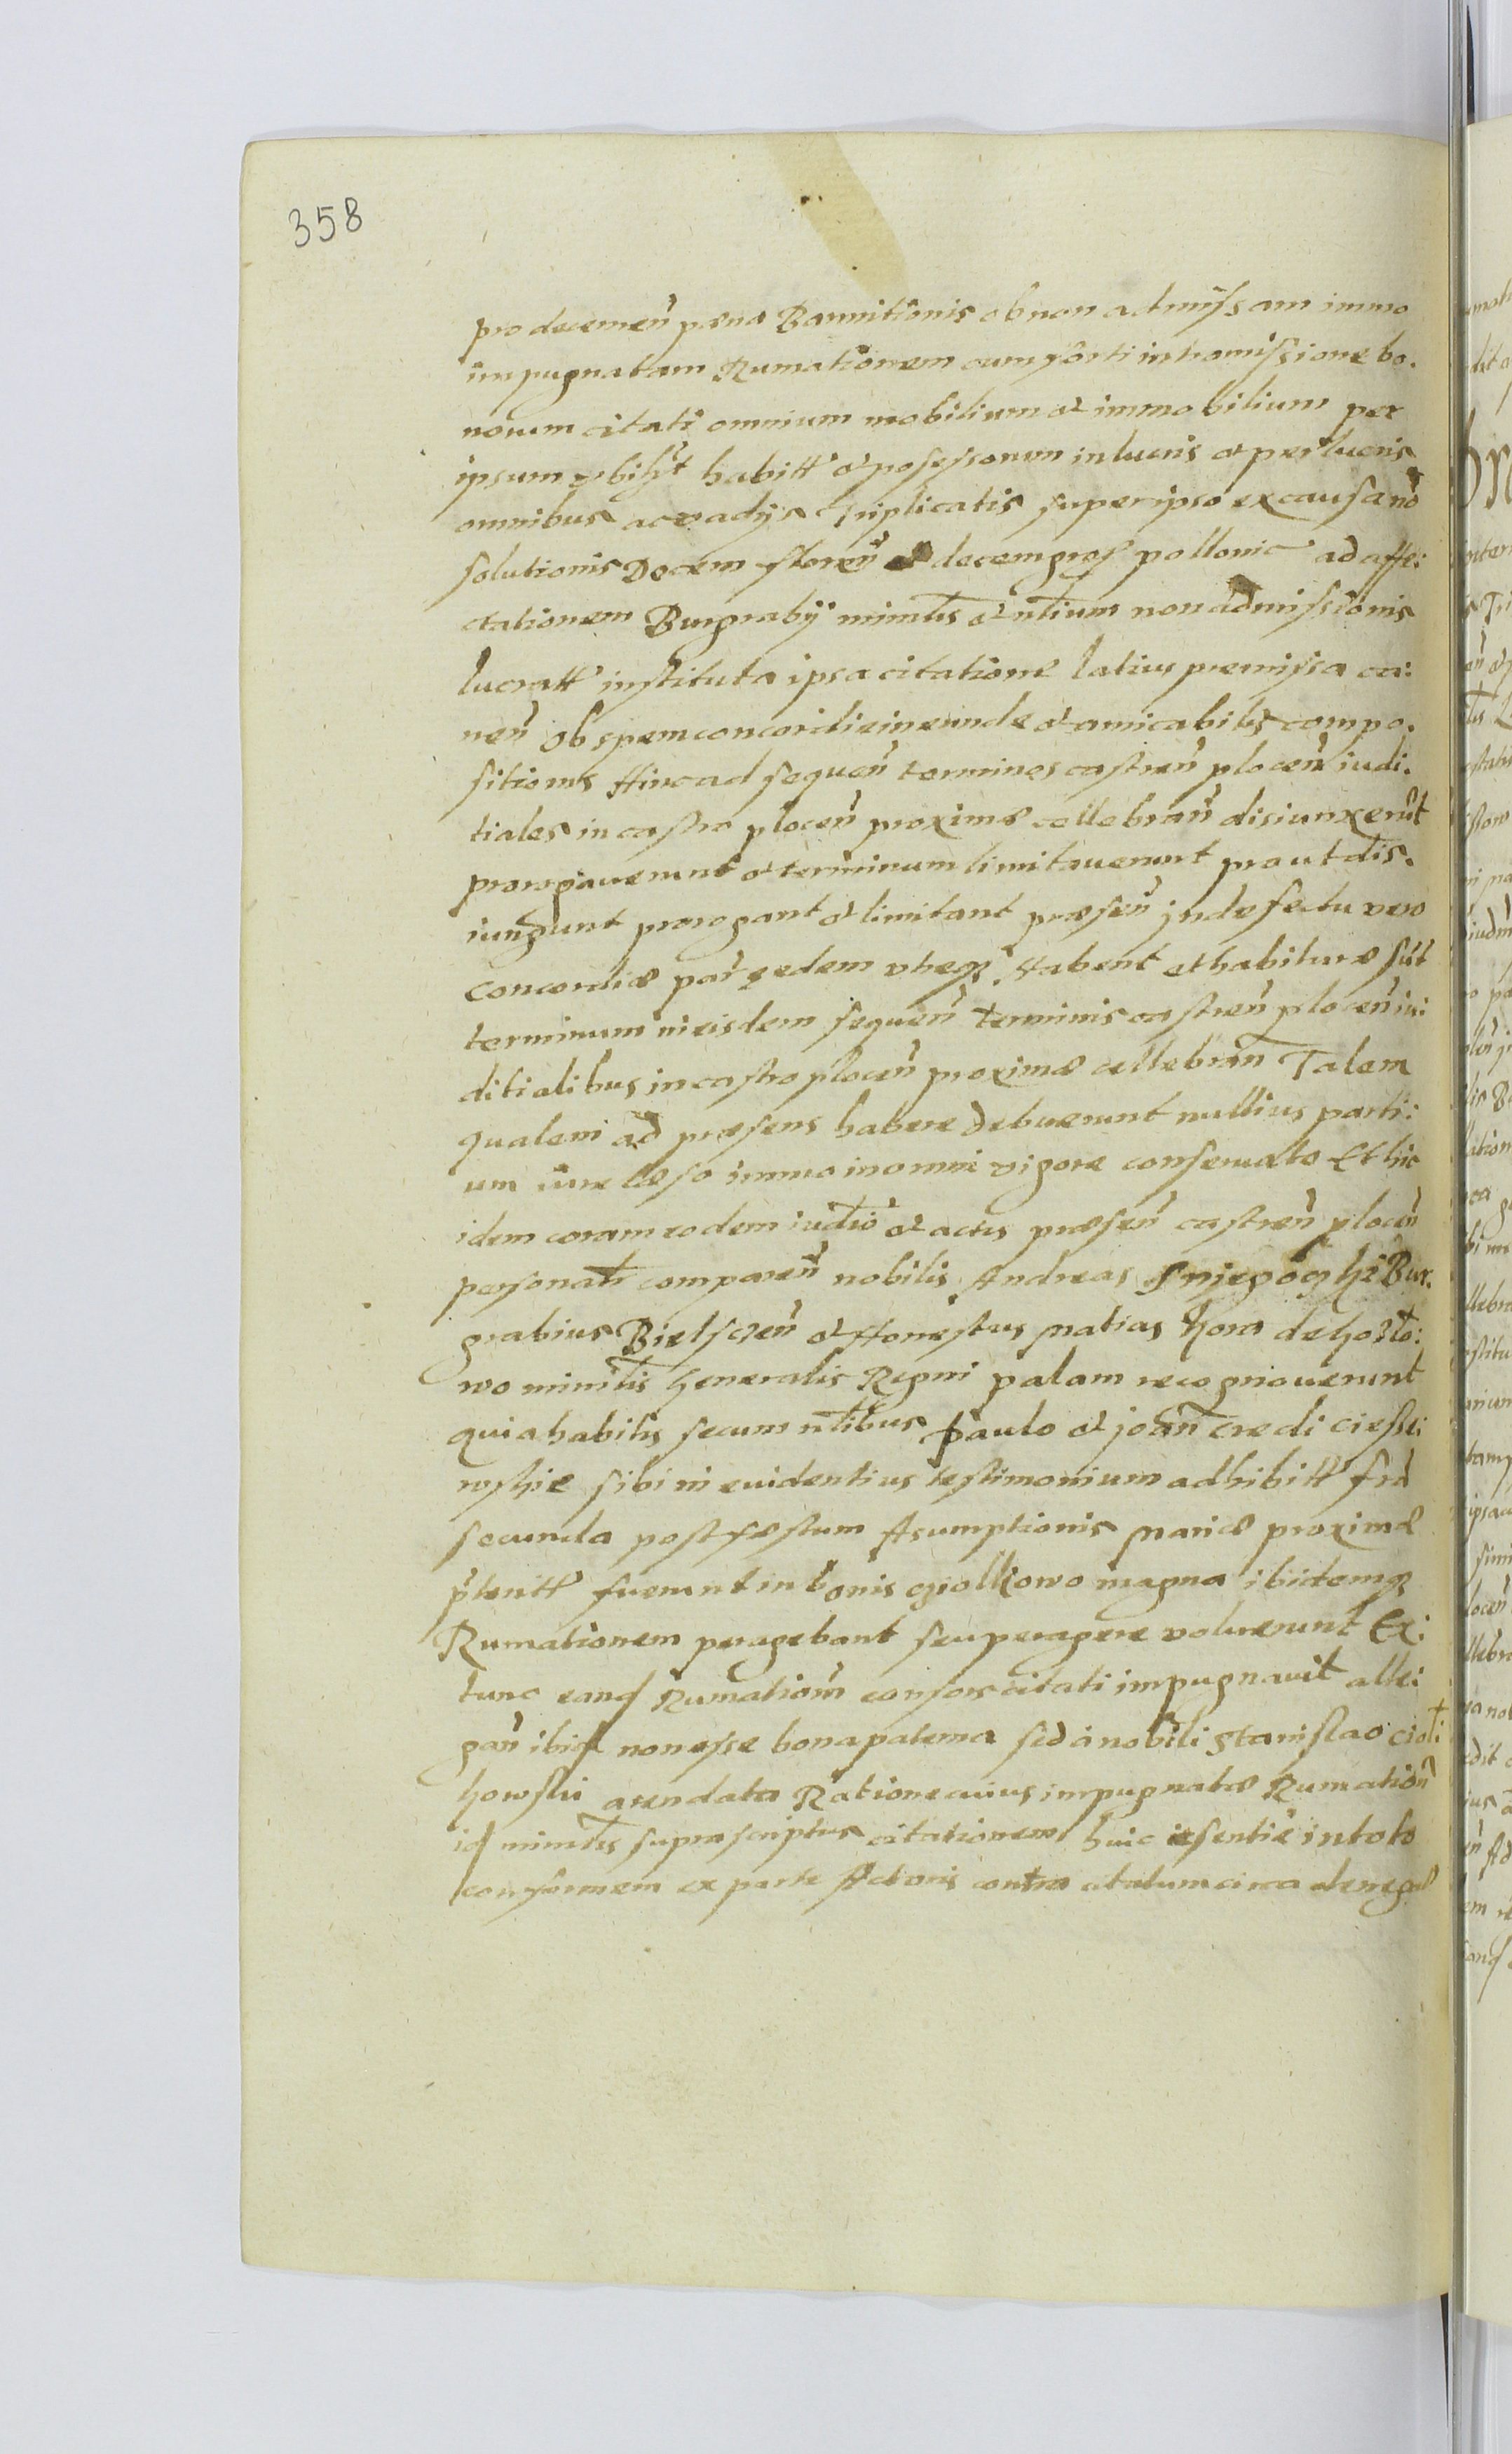 358
pro decernen̄ pœna Bannitionis ob non admissam immo
impugnatam Rumationem cum forti intromissione bo.
norum citati omnium mobilium et immobilium per
ipsum habitt et possessorum in lucris et perlucris
omnibus ac vadijs triplicatis super ipso ex causa nō
solutionis Decem floren̄ et decem gros pollonic ad affe:
ctationem Burgrabij minrlis et nlium non admissionis
lucratt instituta ipsa citatione latius premissa ca:
nen̄ Ob spem concordie ineunde et amicabilis compo.
sitionis Hinc ad sequen̄ terminos castren̄ plocen̄ iudi.
tiales in castro plocen̄ proxime cellebran̄ disiunxerūt
prorogaverunt et terminum limitaverunt prout dis.
iungunt prorogant et limitant præsen̄ jn defectu vero
concordiæ par edem vtreqꝫ Habent et habituræ sūt
terminum in eisdem sequen̄ terminis castren̄ plocen̄ iu:
ditialibus in castro plocen̄ proximæ cellebran̄ Talem
qualem ad præsens habere debuerunt nullius parti:
um iure læso immo in omni vigore conservato Et hic
idem coram eodem iudīo et actis præsen̄ castren̄ plocen̄
personalr comparen̄ nobilis Andreas Bur.
grabius Bielscen̄ et Honestus Matias Kora de
wo minrlis Generalis Regni palam recognoverunt
quia habitis secum nlibus Paulo et joan̄ credi
wskie sibi in evidentius testimonium adhibitt fria
secunda post festum Asumptionis Mariæ proximæ
pteritt fuerunt in bonis Cziolkowo magna ibidemqꝫ
Rumationem peragebant seu peragere voluerunt Ex:
tunc eand Rumationem consors citati impugnavit alle:
gan̄ ibid non esse bona paterna sed a nobili Stanislao Ciol:
kowski arendata Ratione cuius impugnatæ Rumation̄
id minrlis suprascriptus citationem huic insentie in toto
conformem ex parte Actoris contra citatum circa denegat